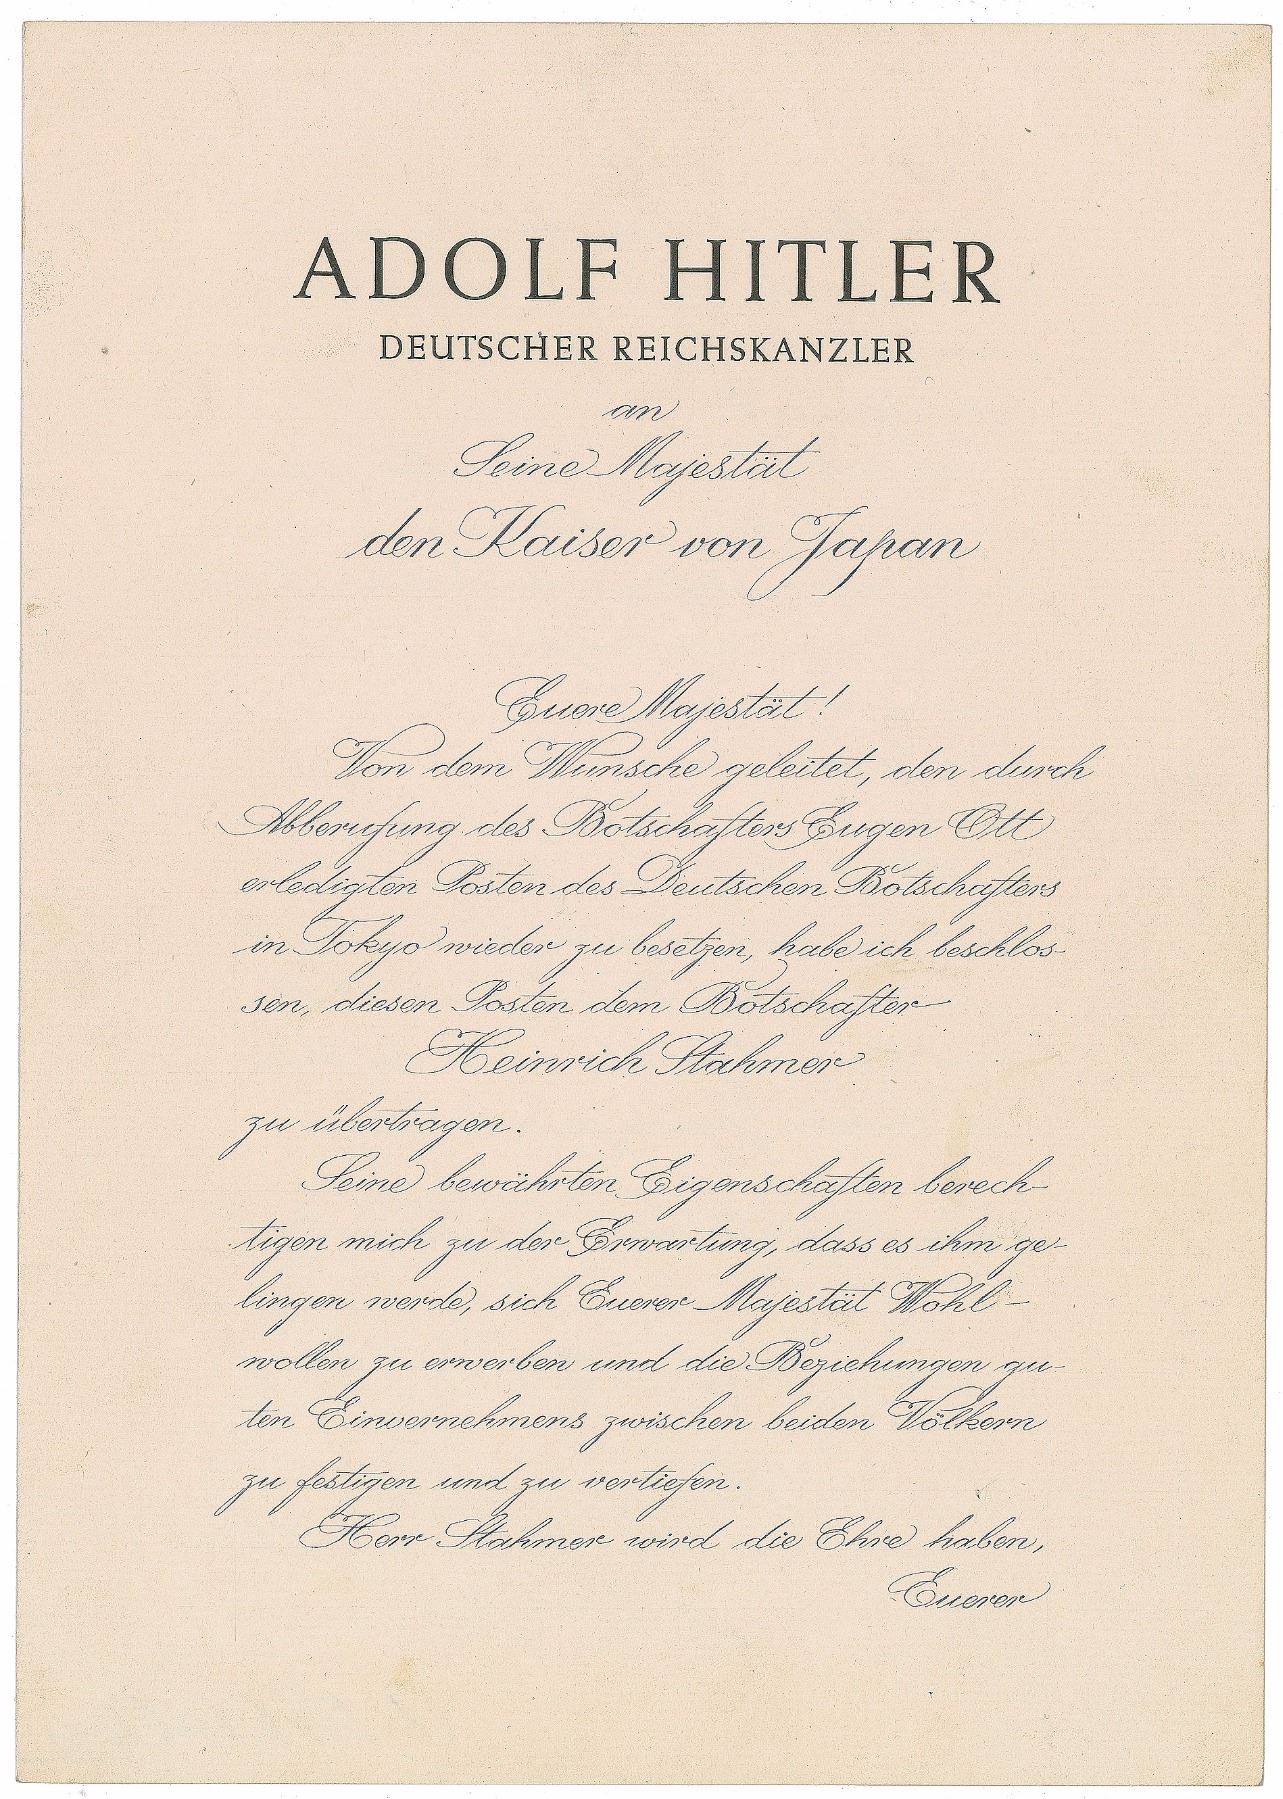 ADOLF HITLER
DEUTSCHER REICHSKANZLER
an
Seine Majestät
den Kaiser von Japan
Euere Majestät!
Von dem Wunsche geleitet, den durch
Abberufung des Botschafters Eugen Ott
erledigten Posten des Deutschen Botschafters
in Tokyo wieder zu besetzen, habe ich beschlos-
sen, diesen Posten dem Botschafter
Heinrich Stahmer
zu übertragen.
Seine bewährten Eigenschaften berech-
tigen mich zu der Erwartung, dass es ihm ge-
lingen werde, sich Euerer Majestät Wohl-
wollen zu erwerben und die Beziehungen gu-
ten Einvernehmens zwischen beiden Völkern
zu festigen und zu vertiefen.
Herr Stahmer wird die Ehre haben,
Euerer